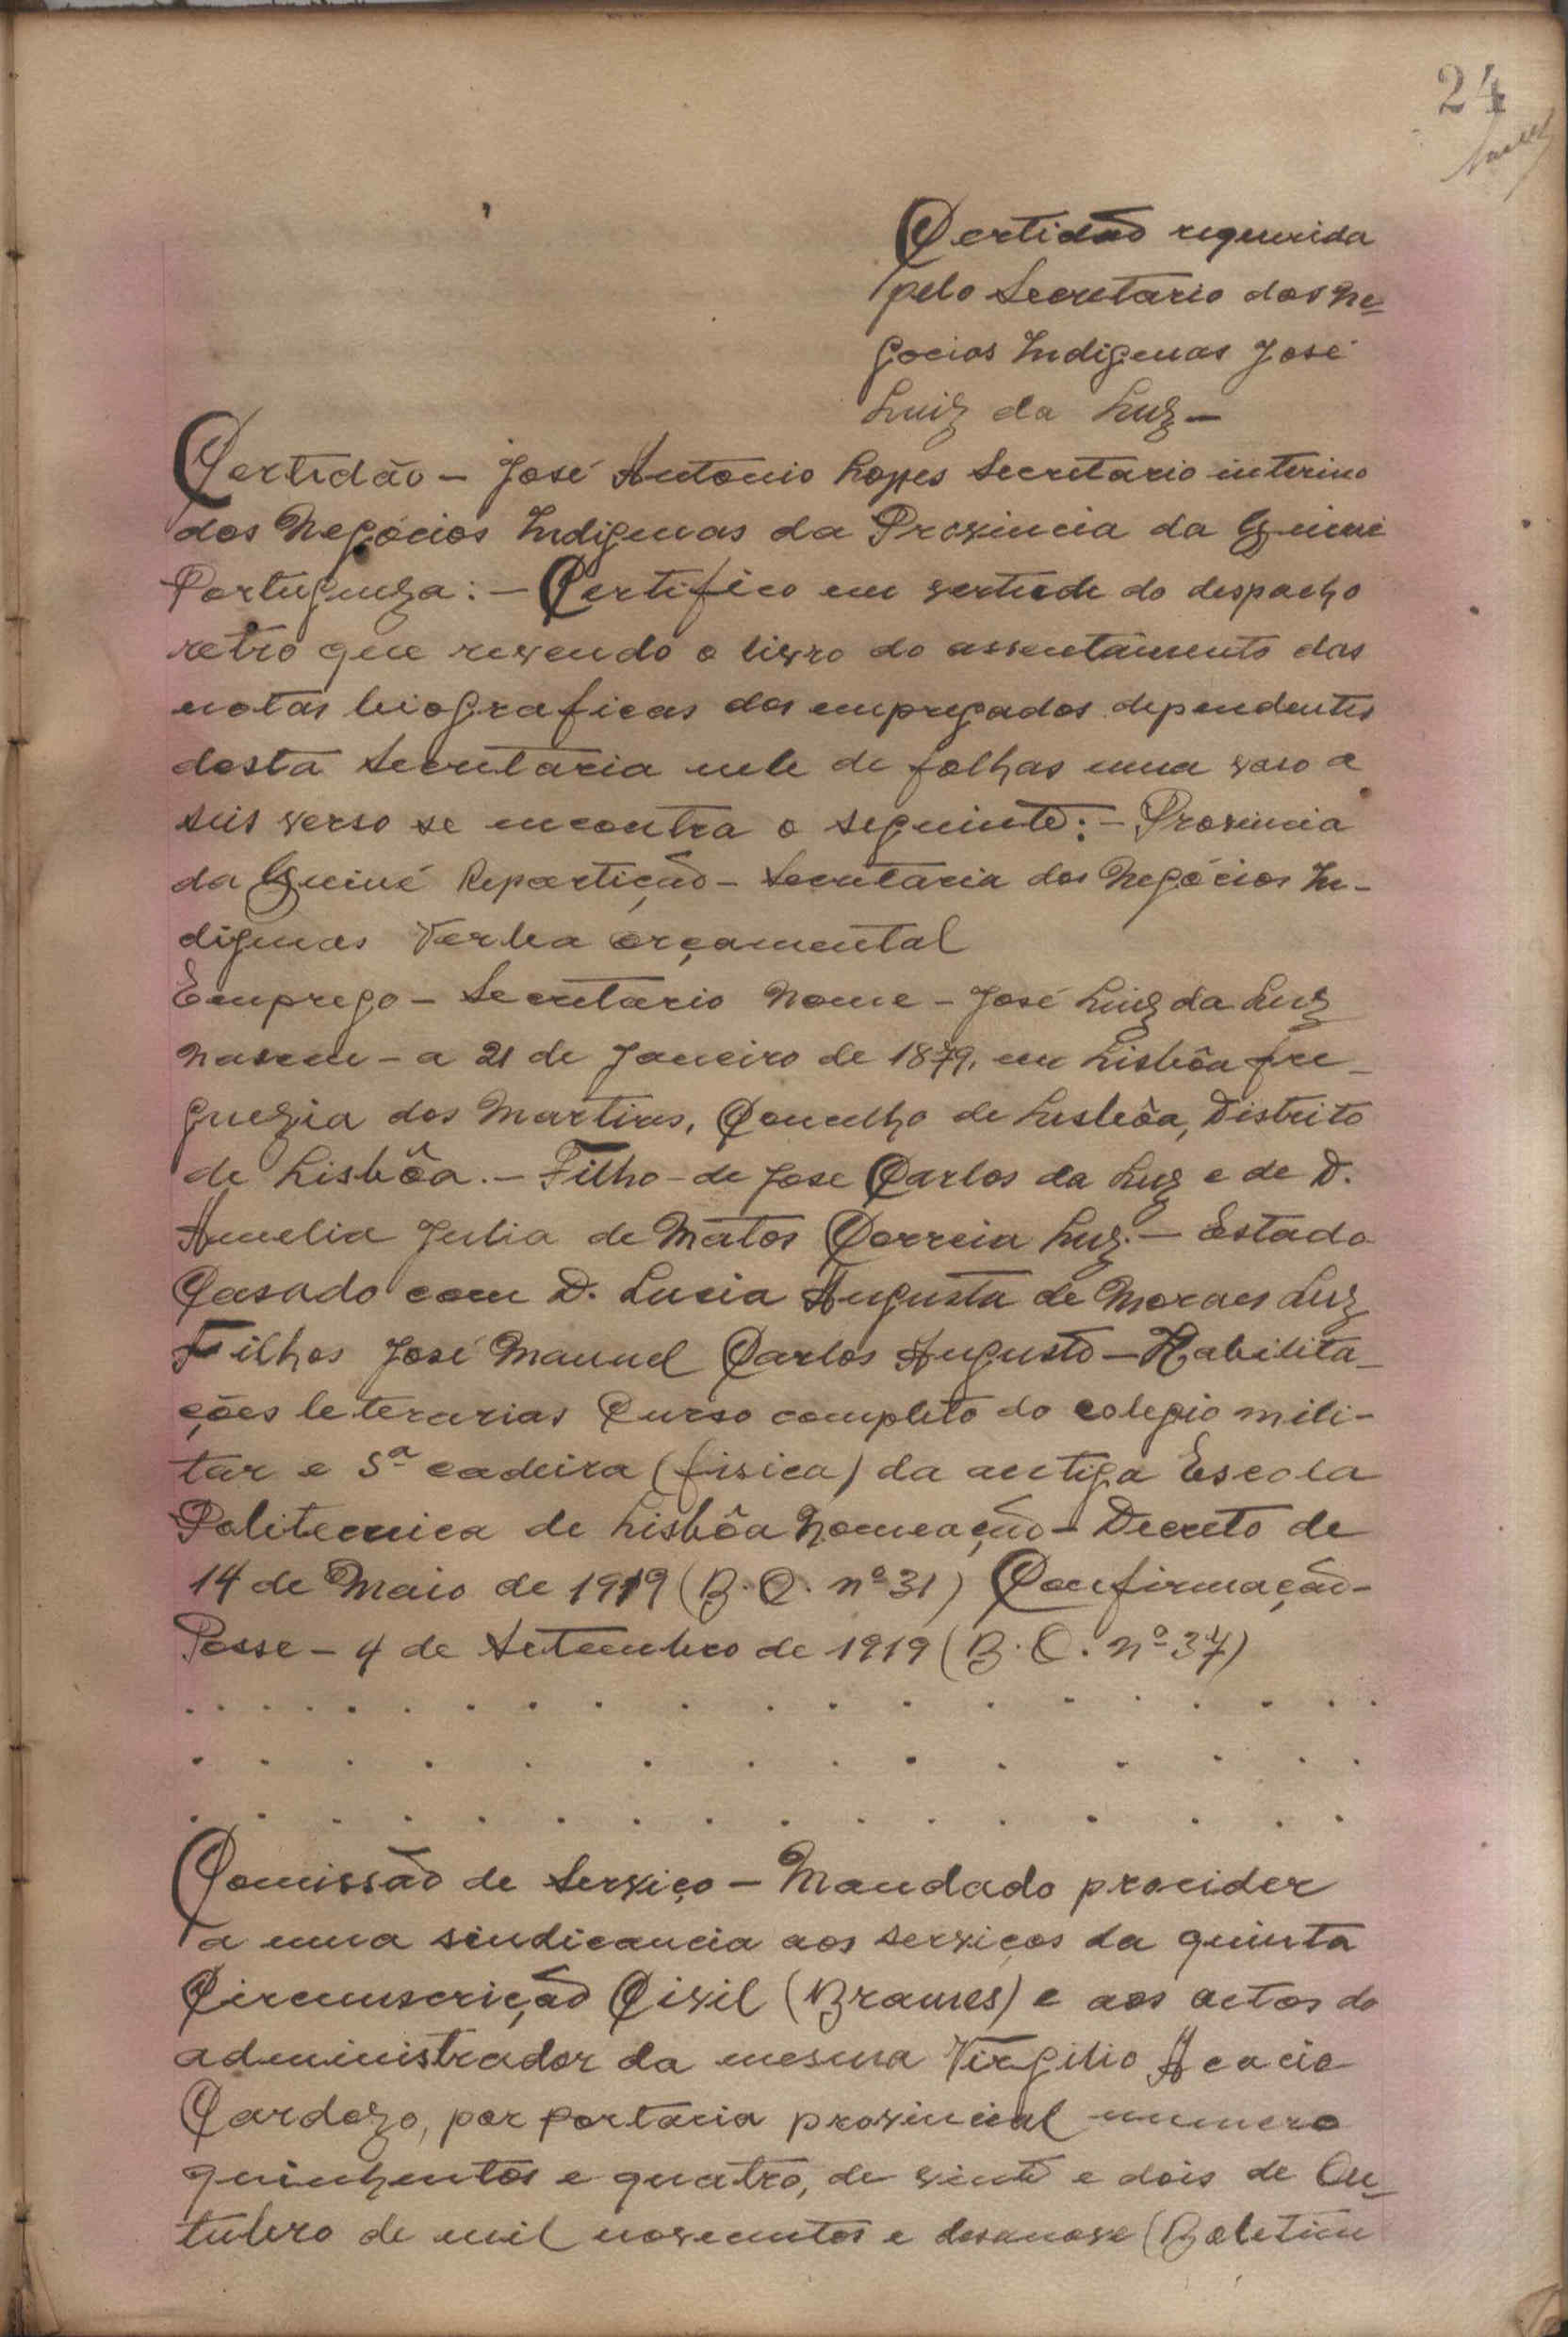 24
Certidão requerida
pelo Secretario dos Ne-
gocios Indigenas José
Luiz da Luz —
Certidão — José Antonio Lopes Secretario interino
dos Negócios Indigenas da Provincia da Guiné
Portugueza: — Certifico em vertude do despacho
retro que revendo o livro do assentamento das
notas biograficas dos empregados dependentes
desta Secretaria nele de folhas uma verso a
seis verso se encontra o seguinte: — Provincia
da Guiné Repartição — Secretaria dos Negócios In-
digenas Verba orçamental
Emprego — Secretario Nome — José Luiz da Luz
Nasceu — a 21 de Janeiro de 1879, em Lisbôa fre-
guezia dos Martires, Concelho de Lisbôa, Distrito
de Lisbôa. — Filho — de Jose Carlos da Luz e de D.
Amelia Julia de Matos Correia Luz. — Estado
Casado com D. Lucia Augusta de Moraes Luz
Filhos José Manuel Carlos Augusto — Habilita-
ções leterarias Curso completo do colegio mili-
tar e 5ª cadeira (fisica) da antiga Escola
Politecnica de Lisbôa Nomeação — Decreto de
14 de Maio de 1919 (B. O. nº 31) Confirmação —
Posse — 4 de Setembro de 1919 (B. O. nº 37)
. . . . . . . . . . . . . . . . . .
. . . . . . . . . . . . .
. . . . . . . . . . . . . . . .
Comissão de Serviço — Mandado proceder
a uma sindicancia aos serviços da quinta
Circunscrição Civil (Brames) e aos actos do
administrador da mesma Virgilio Acacio
Cardozo, por portaria provincial numero
quinhentos e quatro, de vinte e dois de Ou-
tubro de mil novecentos e desanove (Boletim